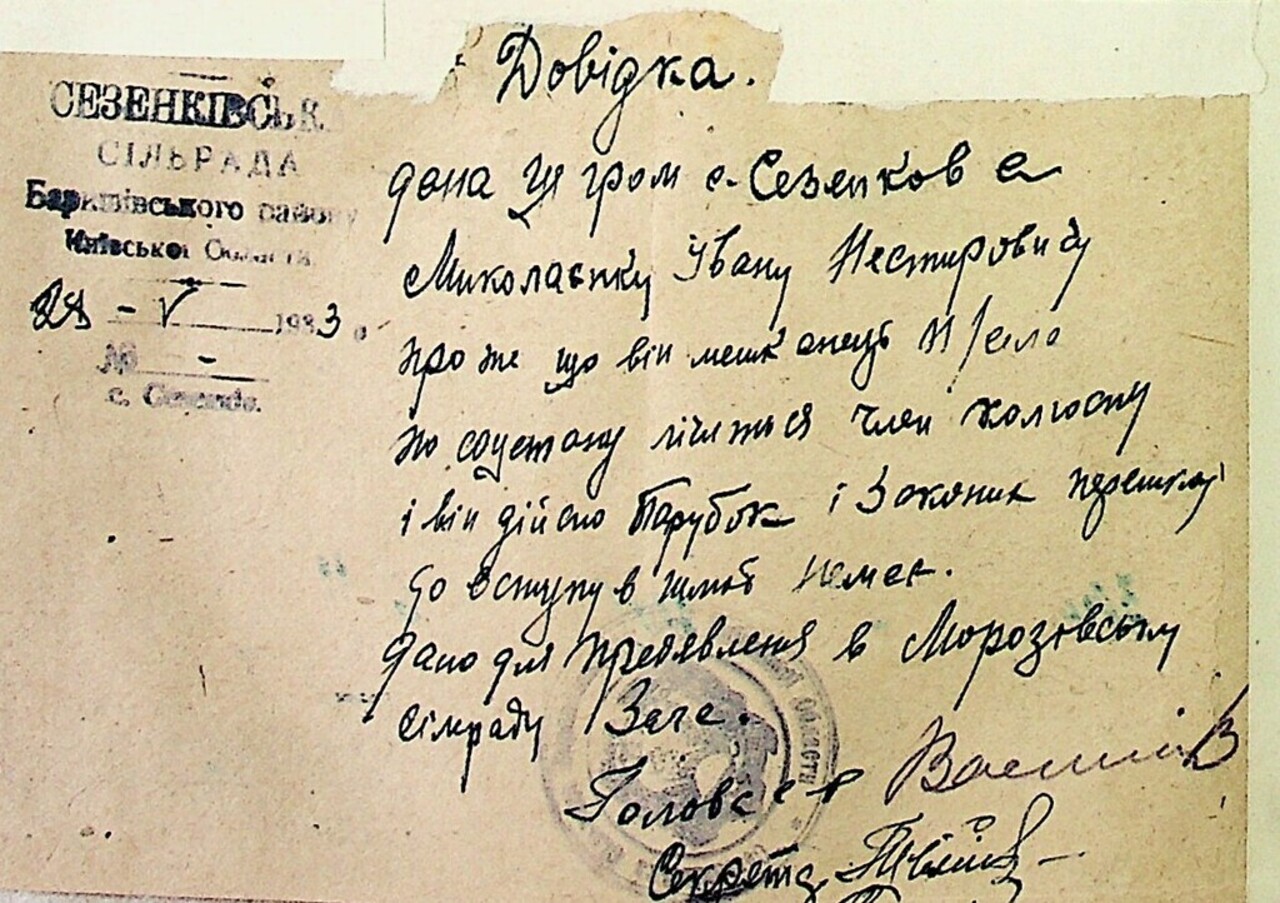 Довідка.
СЕЗЕНКІВСЬК
СІЛЬРАДА
Баришівського району
Київської Области
28 - V 1933 р
№ -
с. Сезенків.
дана ця гром с. Сезенков а
Миколаєнку Івану Нестировичу
про те що він мешканець н/села
по соцстану лічиться член колгоспу
і він дійсно Парубок і Законих перешкод
до вступу в шлюб немає.
Дано для предявлення в Морозівську
сільраду Загс.
Голова с р
Секретар